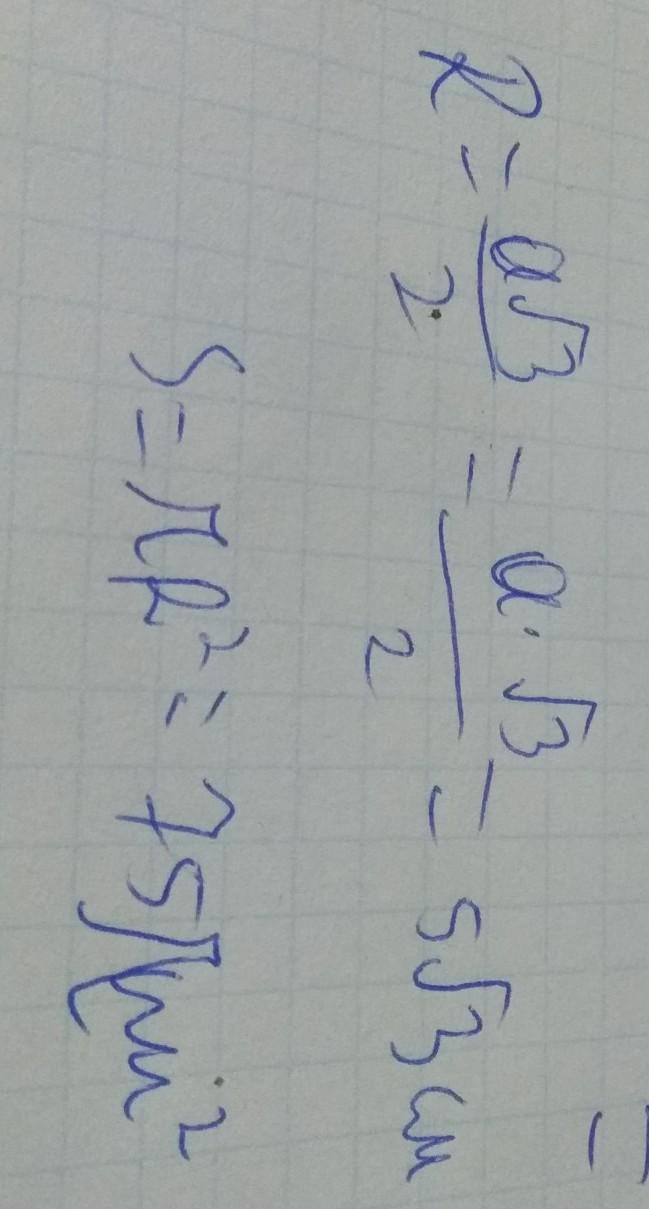 R = a√3/2 = a·√3/2 = 5√3 см
S = πR² = 75π см²